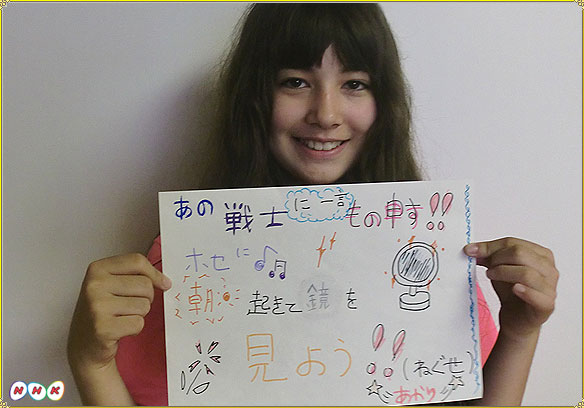 あの戦士に一言もの申す!!
ホセに♪♫
朝起きて鏡を
見よう!!(ねぐせ)
あかり
NHK